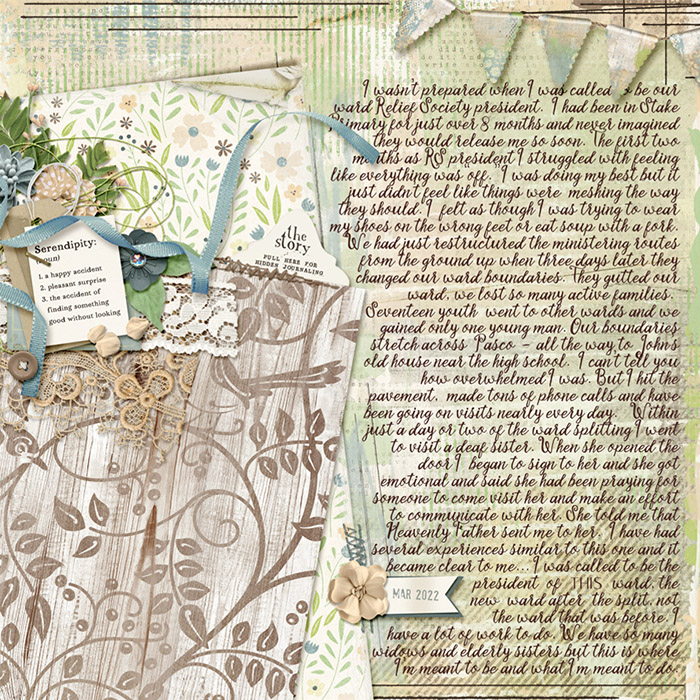 Serendipity:
(noun)
1. a happy accident
2. pleasant surprise
3. the accident of
finding something
good without looking
the
story
PULL HERE FOR
HIDDEN JOURNALING
I wasn't prepared when I was called to be our
ward Relief Society president. I had been in Stake
Primary for just over 8 months and never imagined
they would release me so soon. The first two
months as RS president I struggled with feeling
like everything was off. I was doing my best but it
just didn't feel like things were meshing the way
they should. I felt as though I was trying to wear
my shoes on the wrong feet or eat soup with a fork.
We had just restructured the ministering routes
from the ground up when three days later they
changed our ward boundaries. They gutted our
ward, we lost so many active families.
Seventeen youth went to other wards and we
gained only one young man. Our boundaries
stretch across Pasco - all the way to John's
old house near the high school. I can't tell you
how overwhelmed I was. But I hit the
pavement, made tons of phone calls and have
been going on visits nearly every day. Within
just a day or two of the ward splitting I went
to visit a deaf sister. When she opened the
door I began to sign to her and she got
emotional and said she had been praying for
someone to come visit her and make an effort
to communicate with her. She told me that
Heavenly Father sent me to her. I have had
several experiences similar to this one and it
became clear to me... I was called to be the
president of THIS ward, the
new ward after the split, not
the ward that was before. I
have a lot of work to do. We have so many
widows and elderly sisters but this is where
I'm meant to be and what I'm meant to do.
MAR 2022